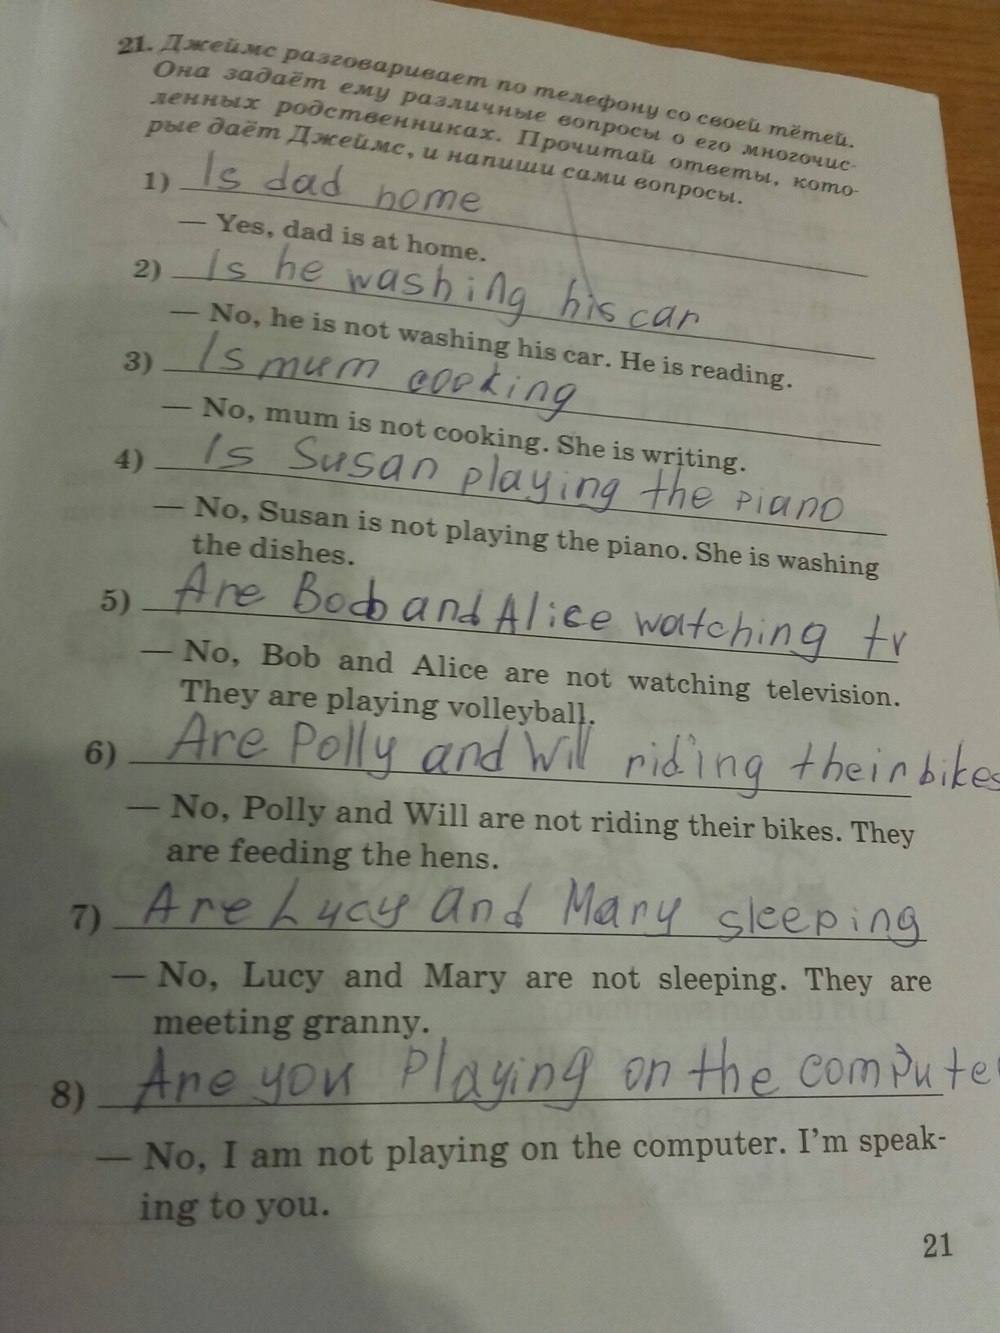 21. Джеймс разговаривает по телефону со своей тётей.
Она задаёт ему различные вопросы о его многочис-
ленных родственниках. Прочитай ответы, кото-
рые даёт Джеймс, и напиши сами вопросы.
1) Is dad home
— Yes, dad is at home.
2) Is he washing his car
— No, he is not washing his car. He is reading.
3) Is mum cooking
— No, mum is not cooking. She is writing.
4) Is Susan playing the piano
— No, Susan is not playing the piano. She is washing
the dishes.
5) Are Bob and Alice watching tv
— No, Bob and Alice are not watching television.
They are playing volleyball.
6) Are Polly and Will riding their bikes
— No, Polly and Will are not riding their bikes. They
are feeding the hens.
7) Are Lucy and Mary sleeping
— No, Lucy and Mary are not sleeping. They are
meeting granny.
8) Are you playing on the compute
— No, I am not playing on the computer. I'm speak-
ing to you.
21